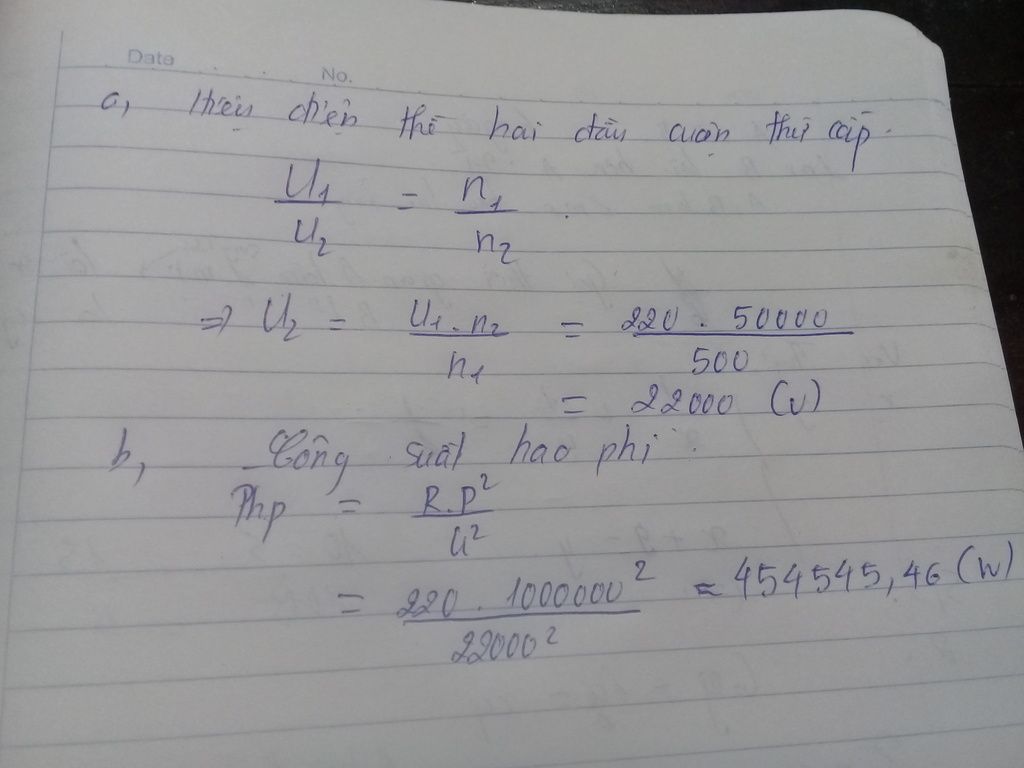 Date No.
a, Hiệu điện thế hai đầu cuộn thứ cấp.
U1/U2 = n1/n2
=> U2 = U1.n2/n1 = 220.50000/500
= 22000 (V)
b, Công suất hao phí.
Php = R.P²/U²
= 220.1000000²/22000² ≈ 454545,46 (W)